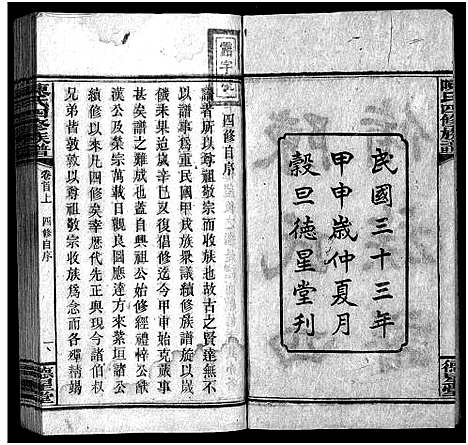 陳氏四修族譜
民國三十三年
甲申歲仲夏月
穀旦德星堂刊
德星堂
四修自序
譜者所以尊祖敬宗而收族也故古之賢達無不
以譜牒為重民國甲戌族衆議續修族譜旋以歲
儉未果迨歲辛巳又復倡修迄今甲申始克蕆事
甚矣譜之難成也蓋自興祖公始修經禮悼公猷
漢公及榮宗萬載日觀良圖應達方來紫垣諸公
續修以來凡四修矣幸歷代先正與現今諸伯叔
兄弟皆能敦尊祖敬宗收族為念而各殫精竭
陳氏四修族譜
卷首上
四修自序
一
德星堂